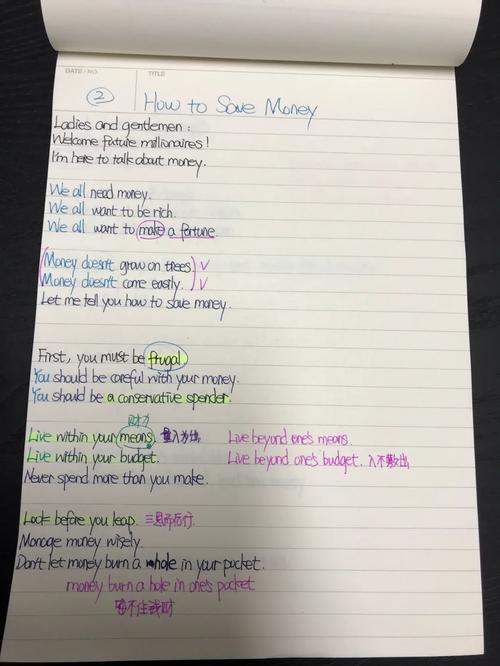 DATE / NO.
TITLE
② How to Save Money
Ladies and gentlemen:
Welcome future millionaires!
I'm here to talk about money.
We all need money.
We all want to be rich.
We all want to make a fortune.
(Money doesn't grow on trees.) √
(Money doesn't come easily.) √
Let me tell you how to save money.
First, you must be frugal.
You should be careful with your money.
You should be a conservative spender.
财力
Live within your means. 量入为出 Live beyond one's means.
Live within your budget. Live beyond one's budget. 入不敷出
Never spend more than you make.
Look before you leap. 三思而后行
Manage money wisely.
Don't let money burn a hole in your pocket.
money burn a hole in one's pocket
留不住钱财